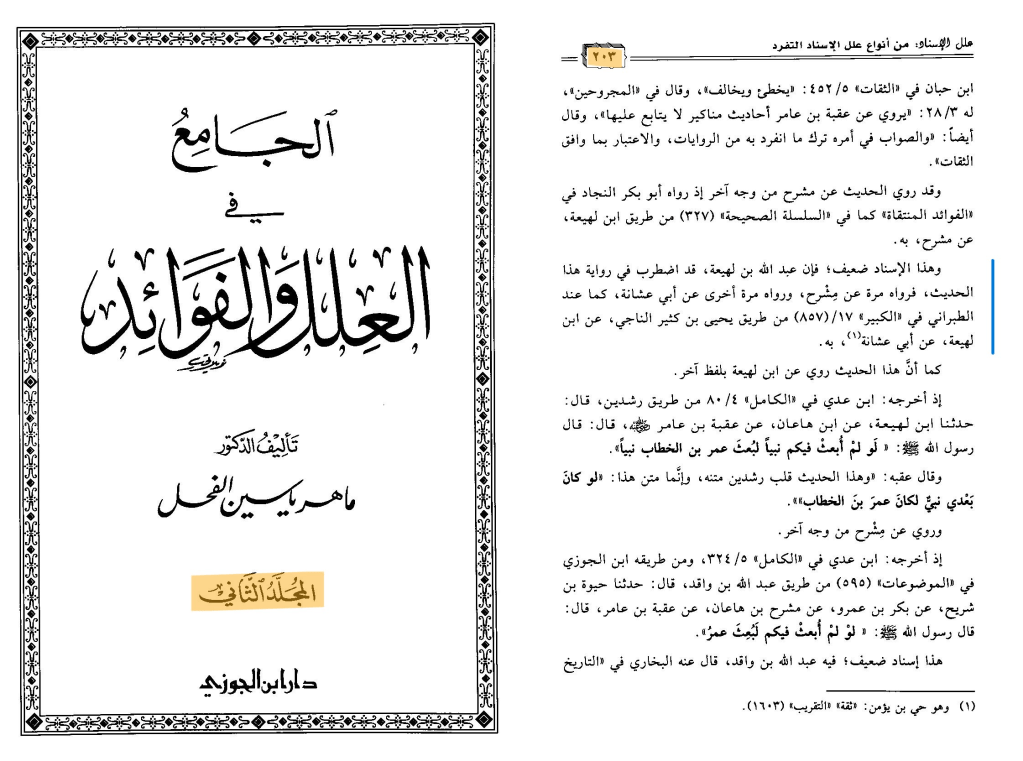 الجامع
في
العلل والفوائد
تأليف الدكتور
ماهر ياسين الفحل
المجلد الثاني
دار ابن الجوزي
علل الإسناد: من أنواع علل الإسناد التفرد
٢٠٣
ابن حبان في «الثقات» ٤٥٢/٥: «يخطئ ويخالف»، وقال في «المجروحين»،
له ٢٨/٣: «يروي عن عقبة بن عامر أحاديث مناكير لا يتابع عليها»، وقال
أيضاً: «والصواب في أمره ترك ما انفرد به من الروايات، والاعتبار بما وافق
الثقات».
وقد روي الحديث عن مشرح من وجه آخر إذ رواه أبو بكر النجاد في
«الفوائد المنتقاة» كما في «السلسلة الصحيحة» (٣٢٧) من طريق ابن لهيعة،
عن مشرح، به.
وهذا الإسناد ضعيف؛ فإن عبد الله بن لهيعة، قد اضطرب في رواية هذا
الحديث، فرواه مرة عن مِشْرح، ورواه مرة أخرى عن أبي عشانة، كما عند
الطبراني في «الكبير» ١٧/(٨٥٧) من طريق يحيى بن كثير الناجي، عن ابن
لهيعة، عن أبي عشانة(١)، به.
كما أنَّ هذا الحديث روي عن ابن لهيعة بلفظ آخر.
إذ أخرجه: ابن عدي في «الكامل» ٨٠/٤ من طريق رشدين، قال:
حدثنا ابن لهيعة، عن ابن هاعان، عن عقبة بن عامر رضي الله عنه، قال: قال
رسول الله ﷺ: « لَو لمْ أُبعثْ فيكم نبياً لبُعثَ عمر بن الخطاب نبياً».
وقال عقبه: «وهذا الحديث قلب رشدين متنه، وإنَّما متن هذا: «لو كانَ
بَعْدي نبيٌّ لكانَ عمرَ بنَ الخطاب»».
وروي عن مِشْرح من وجه آخر.
إذ أخرجه: ابن عدي في «الكامل» ٣٢٤/٥، ومن طريقه ابن الجوزي
في «الموضوعات» (٥٩٥) من طريق عبد الله بن واقد، قال: حدثنا حيوة بن
شريح، عن بكر بن عمرو، عن مشرح بن هاعان، عن عقبة بن عامر، قال:
قال رسول الله ﷺ: « لوْ لمْ أُبعثْ فيكم لَبُعِثَ عمرُ».
هذا إسناد ضعيف؛ فيه عبد الله بن واقد، قال عنه البخاري في «التاريخ
(١) وهو حي بن يؤمن: «ثقة» «التقريب» (١٦٠٣).